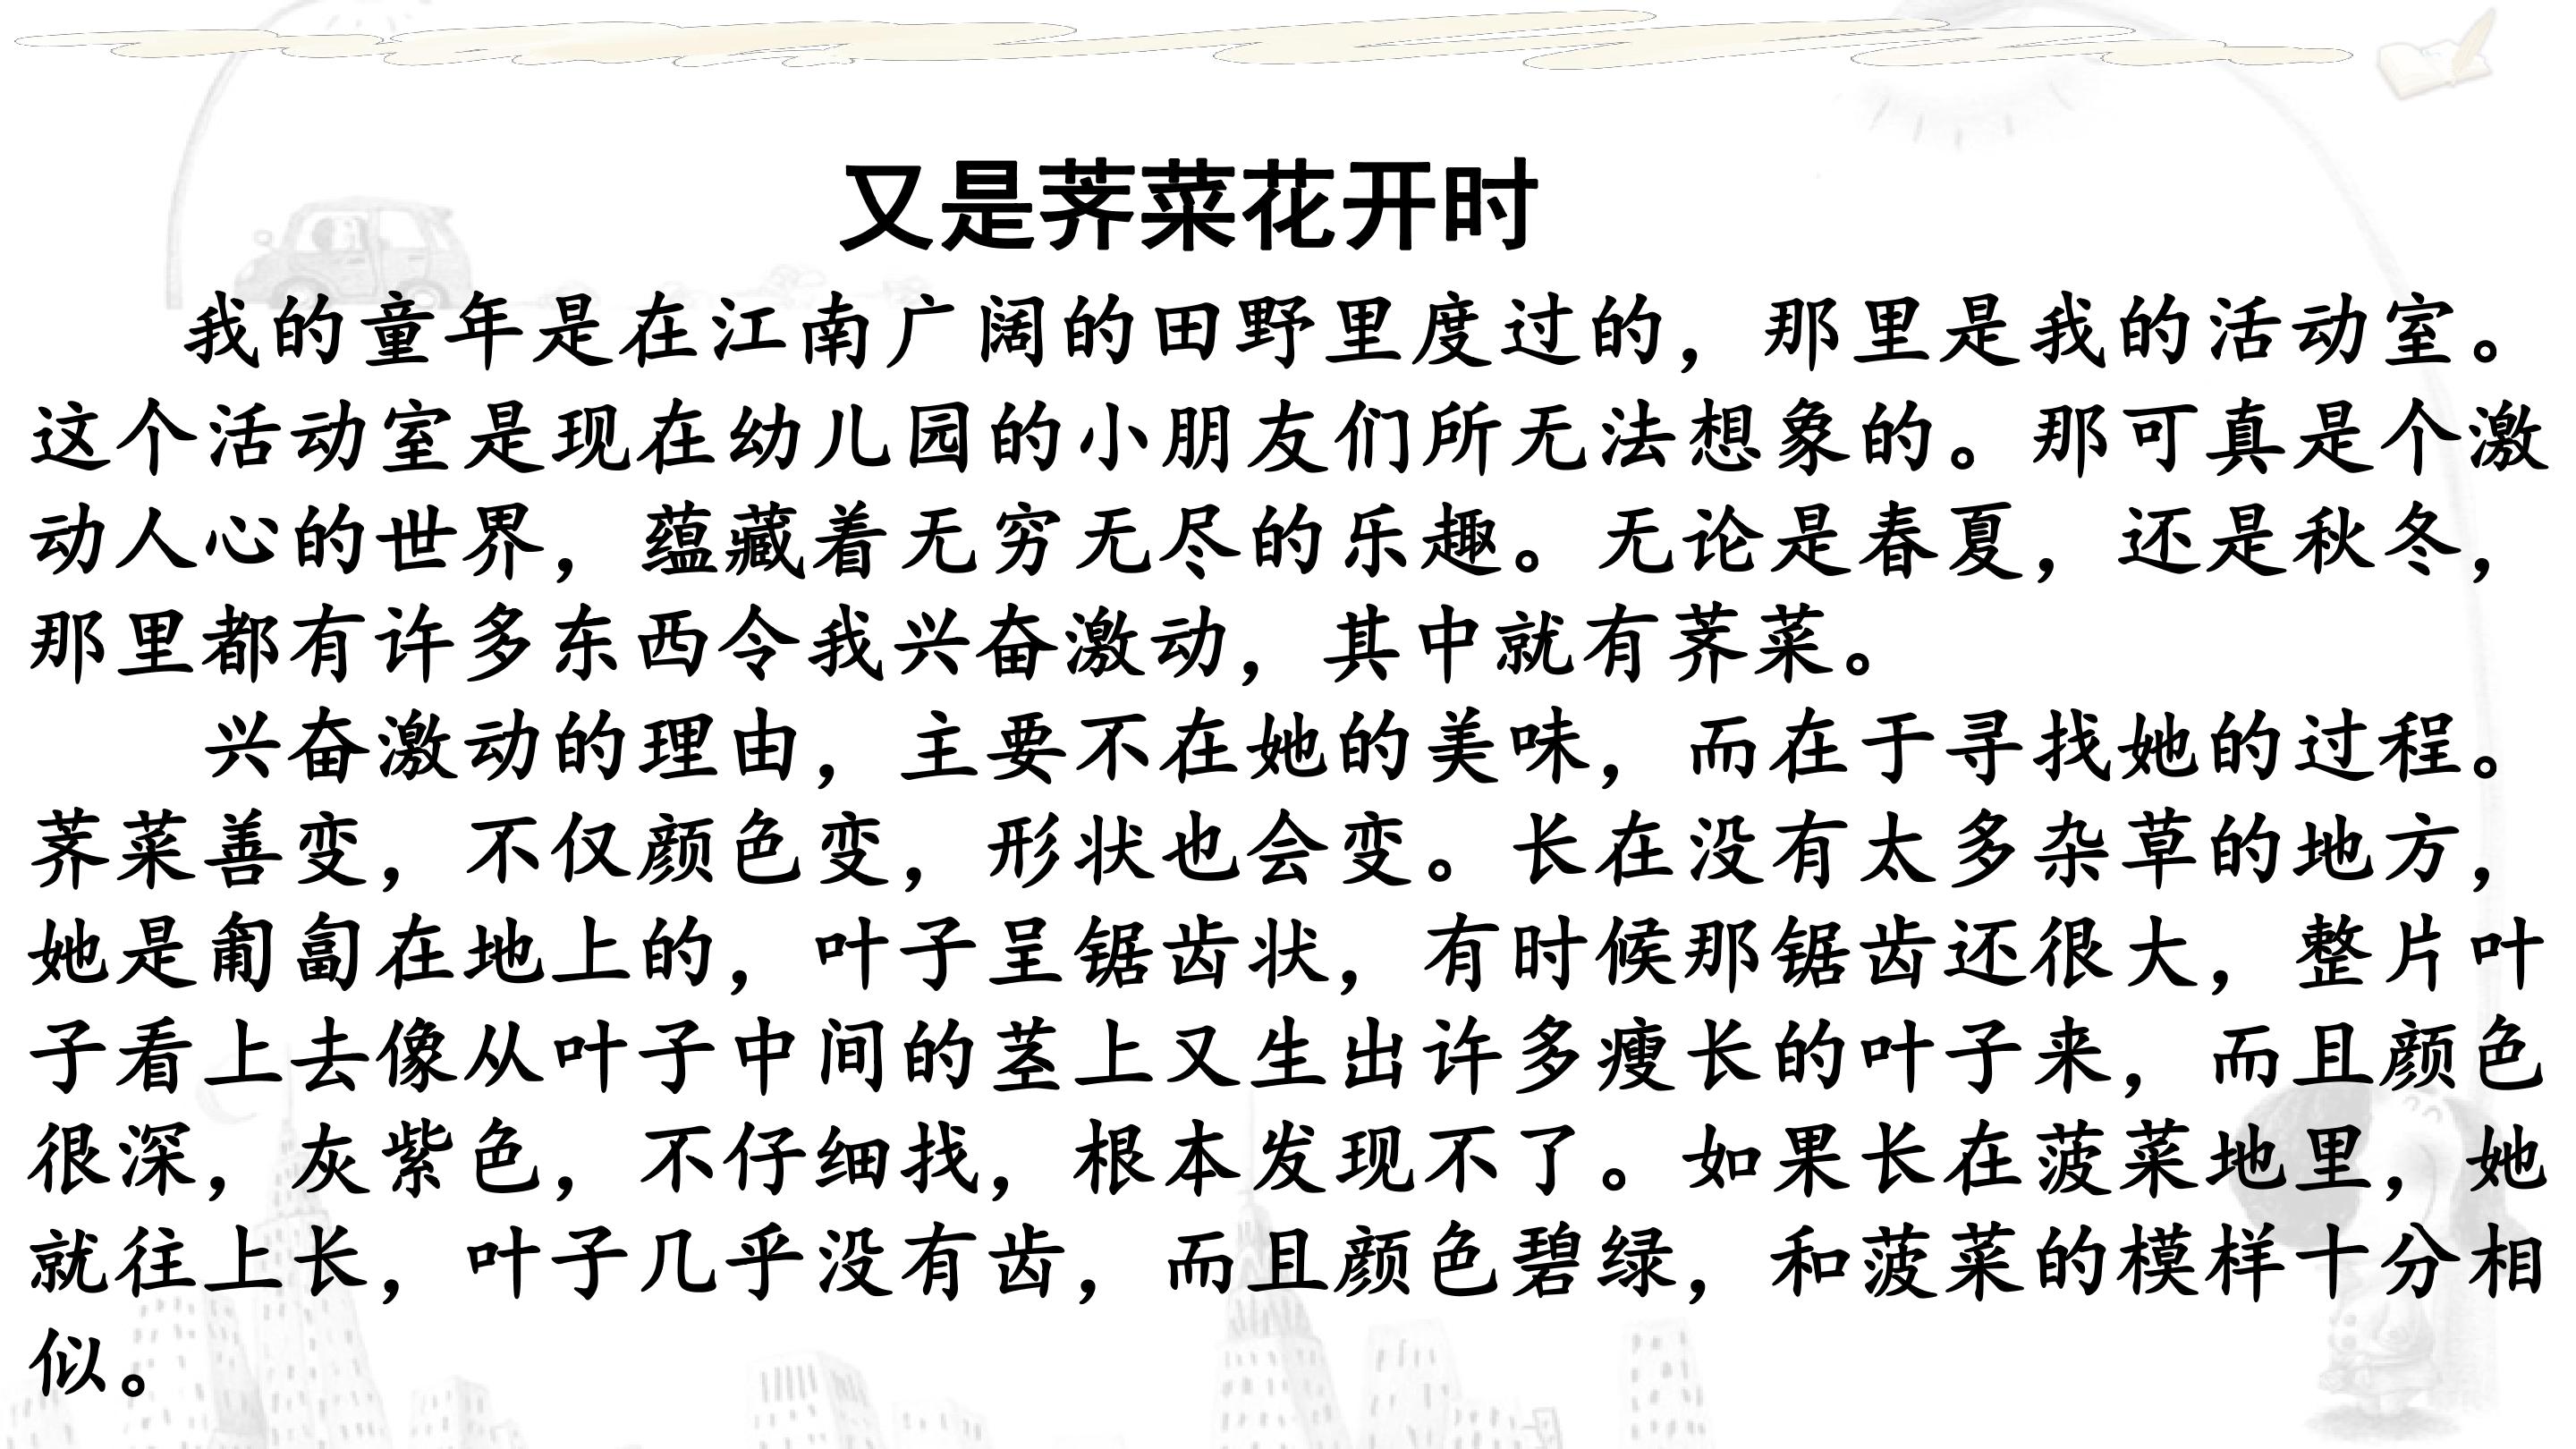 又是荠菜花开时
我的童年是在江南广阔的田野里度过的，那里是我的活动室。
这个活动室是现在幼儿园的小朋友们所无法想象的。那可真是个激
动人心的世界，蕴藏着无穷无尽的乐趣。无论是春夏，还是秋冬，
那里都有许多东西令我兴奋激动，其中就有荠菜。
兴奋激动的理由，主要不在她的美味，而在于寻找她的过程。
荠菜善变，不仅颜色变，形状也会变。长在没有太多杂草的地方，
她是匍匐在地上的，叶子呈锯齿状，有时候那锯齿还很大，整片叶
子看上去像从叶子中间的茎上又生出许多瘦长的叶子来，而且颜色
很深，灰紫色，不仔细找，根本发现不了。如果长在菠菜地里，她
就往上长，叶子几乎没有齿，而且颜色碧绿，和菠菜的模样十分相
似。